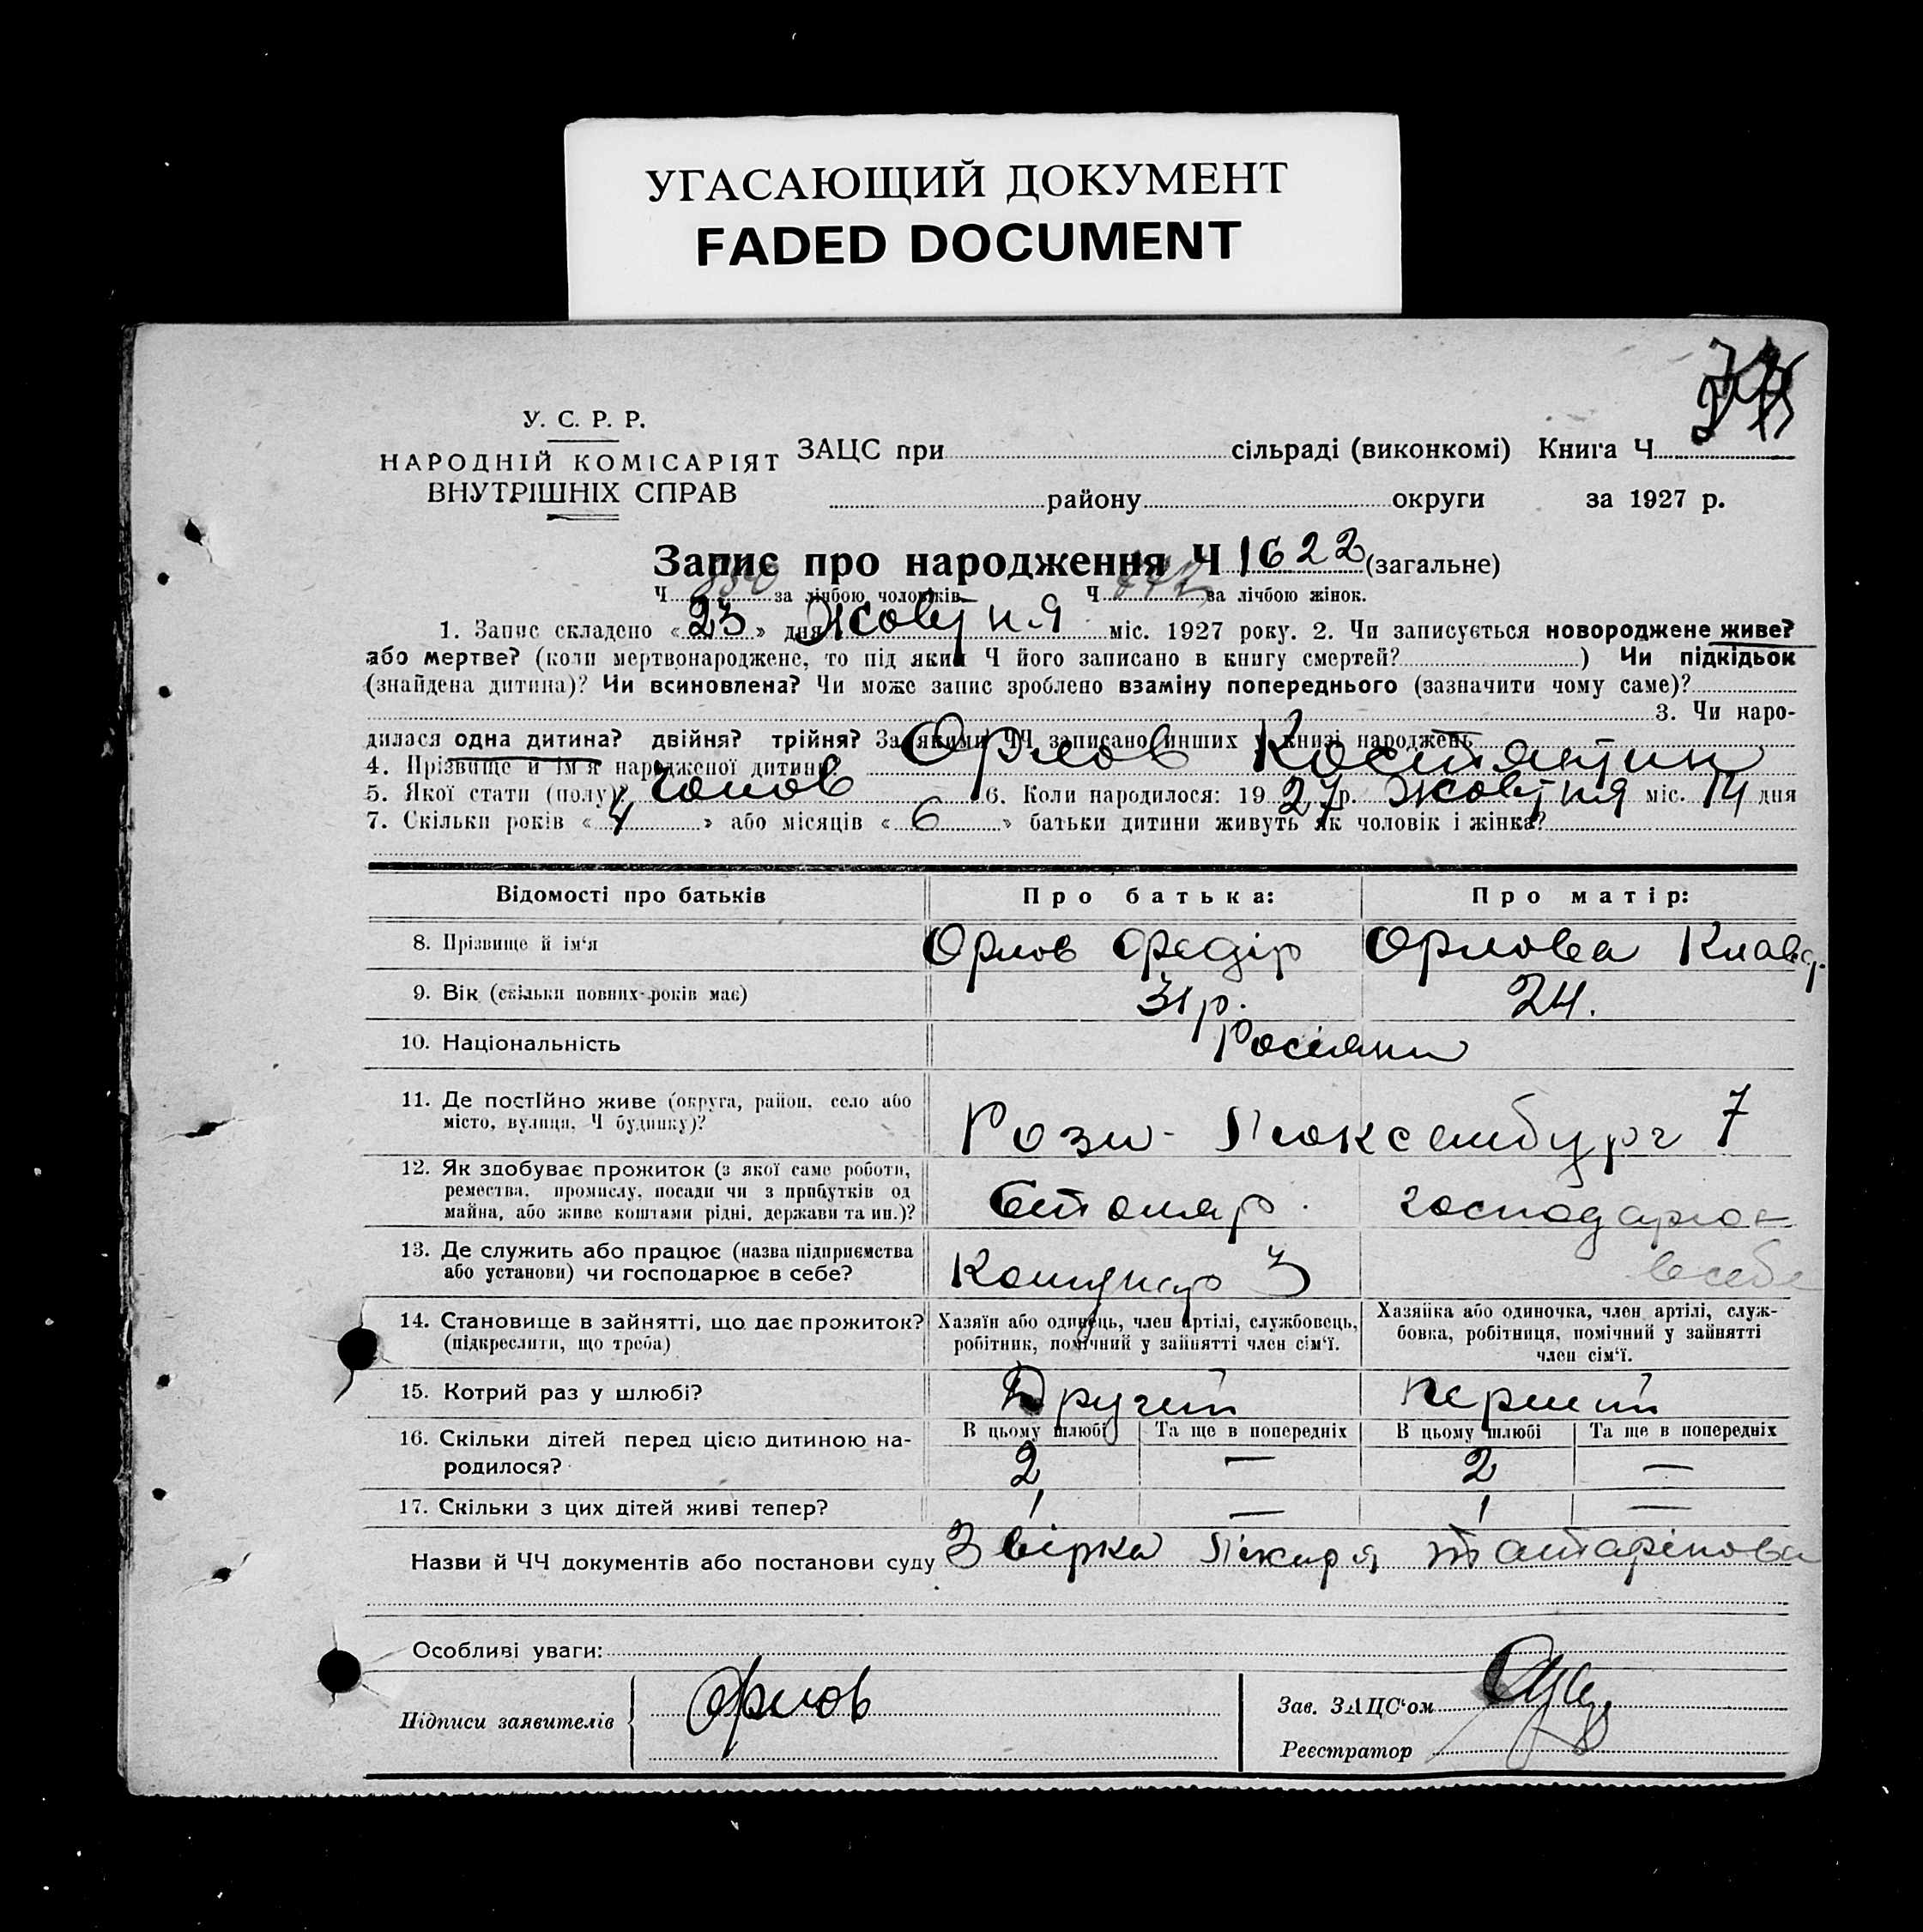 УГАСАЮЩИЙ ДОКУМЕНТ
FADED DOCUMENT
У. С. Р. Р.
НАРОДНІЙ КОМІСАРІЯТ
ВНУТРІШНІХ СПРАВ
ЗАЦС при сільраді (виконкомі) Книга Ч
району округи за 1927 р.
Запис про народження Ч 1622 (загальне)
Ч 880 за лічбою чоловіків Ч 442 за лічбою жінок.
1. Запис складено « 23 » дня Жовтня міс. 1927 року. 2. Чи записується новороджене живе?
або мертве? (коли мертвонароджене, то під яким Ч його записано в книгу смертей? ) Чи підкідьок
(знайдена дитина)? Чи всиновлена? Чи може запис зроблено взаміну попереднього (зазначити чому саме)?
3. Чи наро-
дилася одна дитина? двійня? трійня? За якими ЧЧ записано инших у книзі народжень
4. Прізвище й ім'я народженої дитини: Орлов Костянтин
5. Якої стати (полу)? чолов 6. Коли народилося: 19 27 р. Жовтня міс. 14 дня
7. Скільки років « 4 » або місяців « 6 » батьки дитини живуть як чоловік і жінка?
Відомості про батьків Про батька: Про матір:
8. Прізвище й ім'я Орлов Федір Орлова Клавд.
9. Вік (скільки повних років має) 31 р. 24.
10. Національність Росіяни
11. Де постійно живе (округа, район, село або
місто, вулиця, Ч будинку)? Рози - Люксембург 7
12. Як здобуває прожиток (з якої саме роботи,
ремества, промислу, посади чи з прибутків од
майна, або живе коштами рідні, держави та ин.)? Столяр. господарює
13. Де служить або працює (назва підприємства
або установи) чи господарює в себе? Комунар 3 в себе
14. Становище в зайнятті, що дає прожиток?
(підкреслити, що треба)
Хазяїн або одинець, член артілі, службовець,
робітник, помічний у зайнятті член сім'ї.
Хазяйка або одиночка, член артілі, служ-
бовка, робітниця, помічний у зайнятті
член сім'ї.
15. Котрий раз у шлюбі? Другий перший
16. Скільки дітей перед цією дитиною на-
родилося?
В цьому шлюбі Та ще в попередніх В цьому шлюбі Та ще в попередніх
2 — 2 —
17. Скільки з цих дітей живі тепер? 1 — 1 —
Назви й ЧЧ документів або постанови суду Звірка Лікаря Татарінова
Особливі уваги:
Підписи заявителів Орлов
Зав. ЗАЦС'ом
Реєстратор